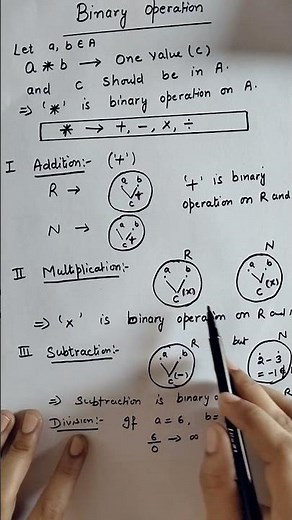 Binary operation
Let a, b ∈ A
a * b → One value (c)
and c should be in A.
⇒ '*' is binary operation on A.
* → +, −, ×, ÷
I Addition:- ('+')
R → a b + c
'+' is binary
operation on R and
N → a b + c
II Multiplication:-
R
a b c (x)
N
a b c (x)
⇒ 'x' is binary operation on R and
III Subtraction:-
R
a b c (−)
but
N
2 − 3
= −1
⇒ Subtraction is binary
Division:- If a = 6, b =
6/0 → ∞